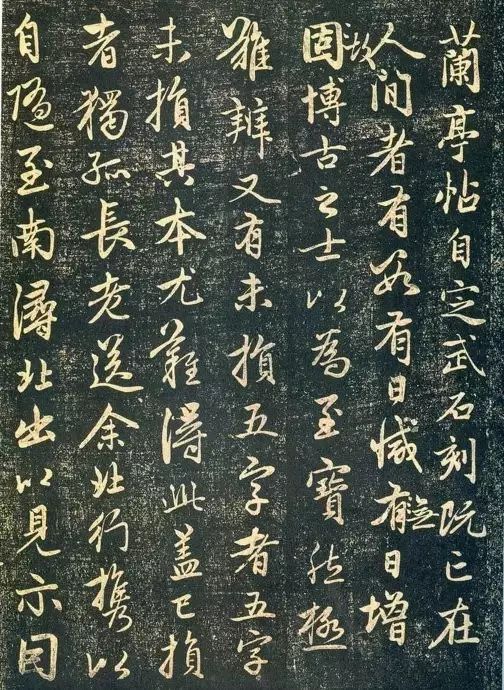 蘭亭帖自定武石刻既亡在
人間者有数有日減有無日增
固故博古之士以為至寶然極
難辨又有未損五字者五字
未損其本尤難得此蓋已損
者獨孤長老送余北行攜以
自随至南潯北出以見示因